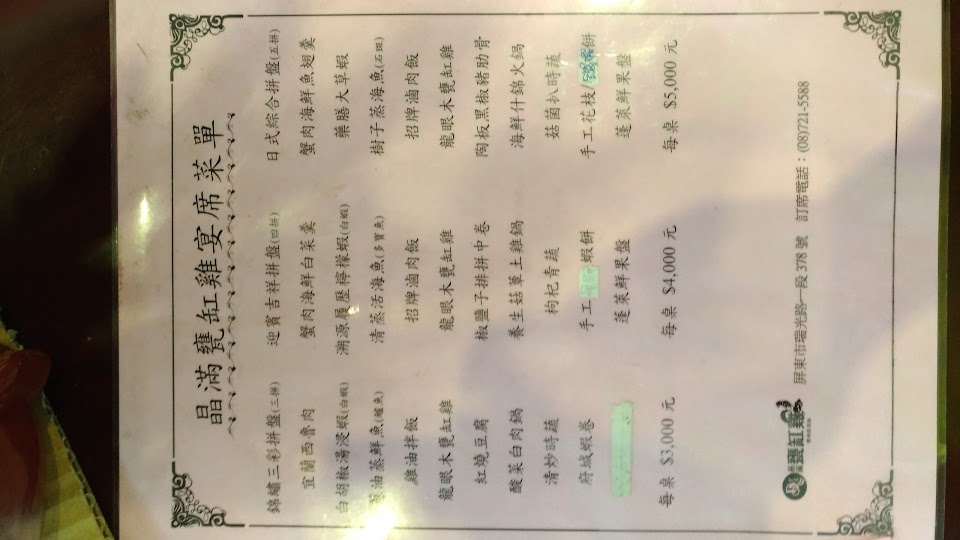 晶滿甕缸雞宴席菜單
錦繡三彩拼盤(三拼)
宜蘭西魯肉
白胡椒湯浸蝦(白蝦)
油蒸鮮魚(鱸魚)
雞油拌飯
龍眼木甕缸雞
紅燒豆腐
酸菜白肉鍋
清炒時蔬
府城蝦卷
每桌 $3,000 元
迎賓吉祥拼盤(四拼)
蟹肉海鮮白菜羹
溯源履歷檸檬蝦(白蝦)
清蒸活海魚(多寶魚)
招牌滷肉飯
龍眼木甕缸雞
椒鹽子排拼中卷
養生菇蕈土雞鍋
枸杞青蔬
手工 蝦餅
蓬萊鮮果盤
每桌 $4,000 元
日式綜合拼盤(五拼)
蟹肉海鮮魚翅羹
藥膳大草蝦
樹子蒸海魚(石斑)
招牌滷肉飯
龍眼木甕缸雞
陶板黑椒豬肋骨
海鮮什錦火鍋
菇菌扒時蔬
手工花枝/ 餅
蓬萊鮮果盤
每桌 $5,000 元
甕缸雞
屏東市瑞光路一段378號 訂席電話：(08)721-5588